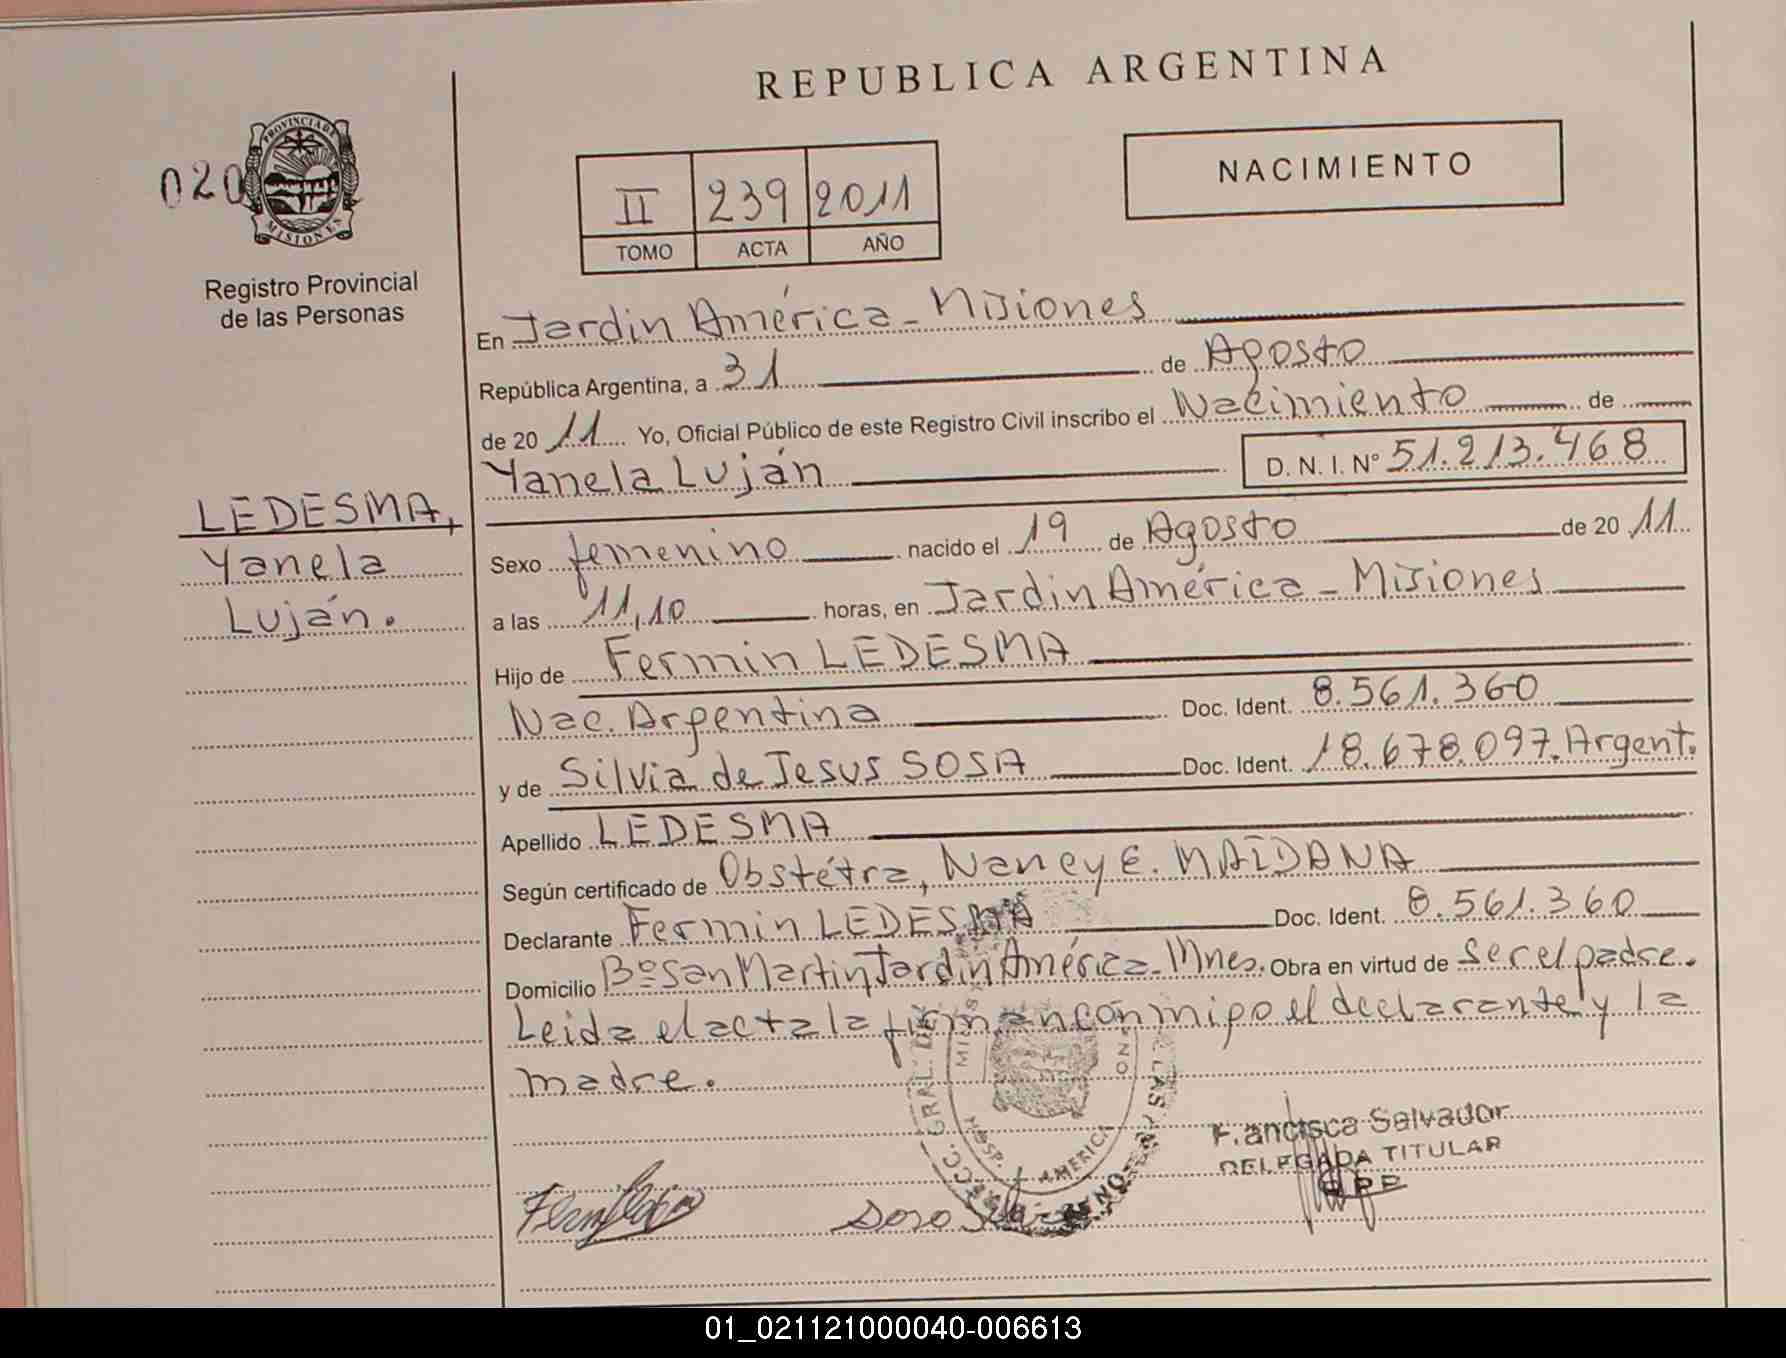 REPUBLICA ARGENTINA
020
PROVINCIA DE
MISIONES
Registro Provincial
de las Personas
II 239 2011
TOMO ACTA AÑO
NACIMIENTO
En Jardin América - Misiones
República Argentina, a 31 de Agosto
de 20 11 Yo, Oficial Público de este Registro Civil inscribo el Nacimiento de
Yanela Luján D. N. I. Nº 51.213.468
LEDESMA,
Yanela
Luján.
Sexo femenino nacido el 19 de Agosto de 20 11
a las 11,10 horas, en Jardin América - Misiones
Hijo de Fermin LEDESMA
Nac. Argentina Doc. Ident. 8.561.360
y de Silvia de Jesus SOSA Doc. Ident. 18.678.097. Argent.
Apellido LEDESMA
Según certificado de Obstétra, Nancy E. MAIDANA
Declarante Fermin LEDESMA Doc. Ident. 8.561.360
Domicilio Bº San Martin Jardin América - Mnes. Obra en virtud de ser el padre.
Leida el acta la firman conmigo el declarante y la
madre.
Francisca Salvador
DELEGADA TITULAR
01_021121000040-006613